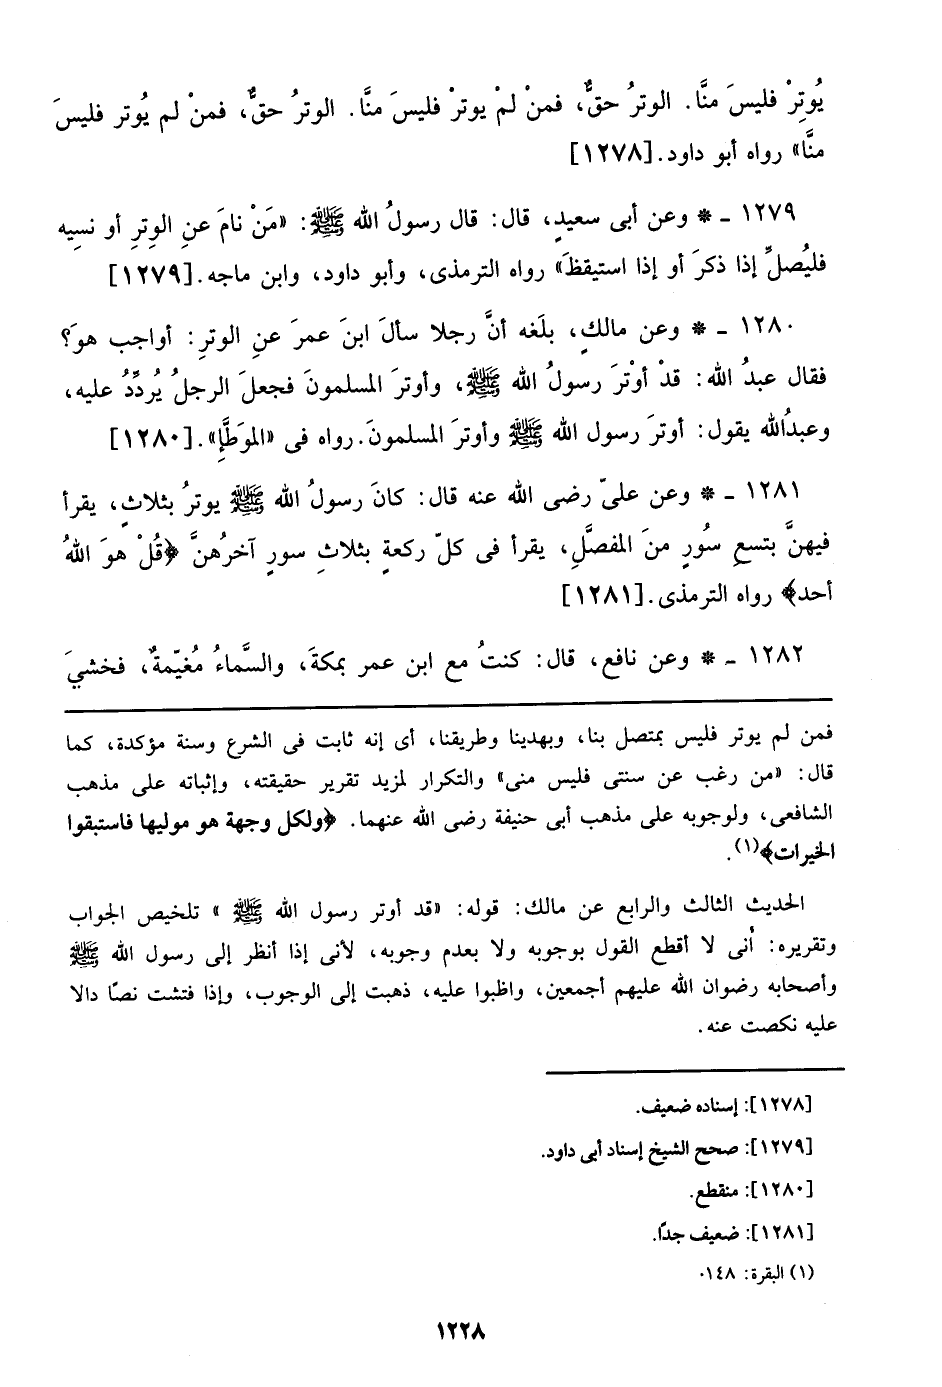 يُوتِرْ فليسَ منَّا. الوترُ حقٌّ، فمنْ لمْ يوترْ فليسَ منَّا. الوترُ حقٌّ، فمنْ لم يُوتر فليسَ
منَّا» رواه أبو داود.[١٢٧٨]
١٢٧٩ ـ * وعن أبى سعيدٍ، قال: قال رسولُ الله ﷺ: «مَنْ نامَ عنِ الوِترِ أو نسِيه
فليُصلِّ إذا ذكرَ أو إذا استيقظَ» رواه الترمذى، وأبو داود، وابن ماجه.[١٢٧٩]
١٢٨٠ ـ * وعن مالكٍ، بلَغه أنَّ رجلا سألَ ابنَ عمرَ عنِ الوترِ: أواجب هوَ؟
فقال عبدُ الله: قدْ أوْترَ رسولُ الله ﷺ، وأوترَ المسلمونَ فجعلَ الرجلُ يُردِّدُ عليه،
وعبدُالله يقول: أوترَ رسول الله ﷺ وأوترَ المسلمونَ.رواه فى «الموَطَّإِ».[١٢٨٠]
١٢٨١ ـ * وعن علىّ رضى الله عنه قال: كانَ رسولُ الله ﷺ يوترُ بثلاثٍ، يقرأ
فيهنَّ بتسعِ سُورٍ منَ المفصَّلِ، يقرأ فى كلّ ركعةٍ بثلاثِ سورٍ آخرُهنَّ ﴿قُلْ هوَ اللهُ
أحد﴾ رواه الترمذى.[١٢٨١]
١٢٨٢ ـ * وعن نافع، قال: كنتُ مع ابن عمر بمكةَ، والسَّماءُ مُغيّمةٌ، فخشيَ
فمن لم يوتر فليس بمتصل بنا، وبهدينا وطريقنا، أى إنه ثابت فى الشرع وسنة مؤكدة، كما
قال: «من رغب عن سنتى فليس منى» والتكرار لمزيد تقرير حقيقته، وإثباته على مذهب
الشافعى، ولوجوبه على مذهب أبى حنيفة رضى الله عنهما. ﴿ولكل وجهة هو موليها فاستبقوا
الخيرات﴾(١).
الحديث الثالث والرابع عن مالك: قوله: «قد أوتر رسول الله ﷺ » تلخيص الجواب
وتقريره: أنى لا أقطع القول بوجوبه ولا بعدم وجوبه، لأنى إذا أنظر إلى رسول الله ﷺ
وأصحابه رضوان الله عليهم أجمعين، واظبوا عليه، ذهبت إلى الوجوب، وإذا فتشت نصًا دالا
عليه نكصت عنه.
[١٢٧٨]: إسناده ضعيف.
[١٢٧٩]: صحح الشيخ إسناد أبى داود.
[١٢٨٠]: منقطع.
[١٢٨١]: ضعيف جدًا.
(١) البقرة: ١٤٨٠
١٢٢٨